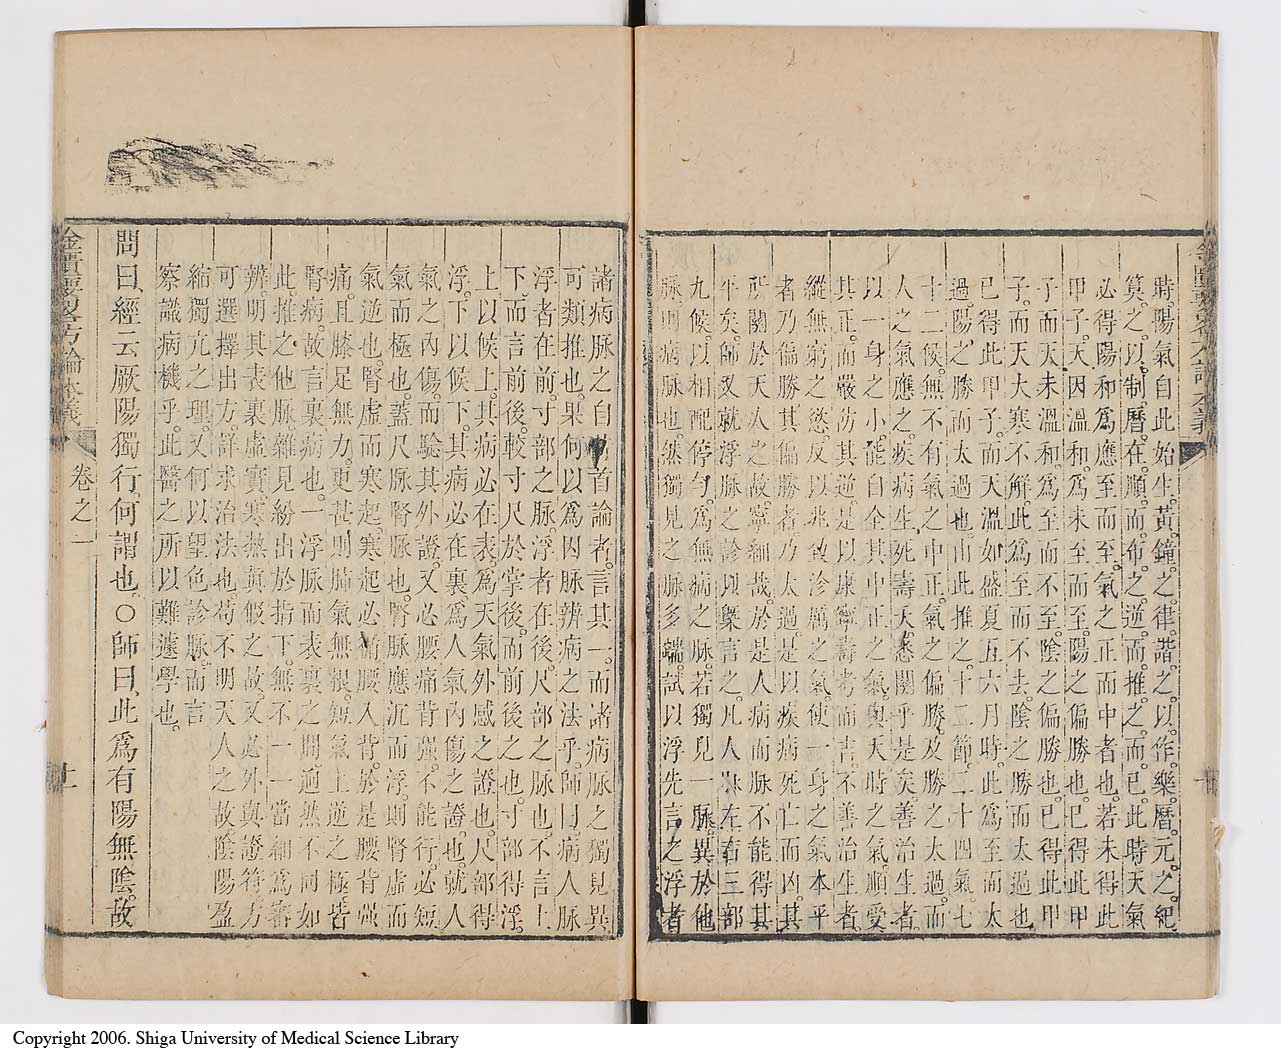 時陽氣自此始生。黃鐘之律諧之。以作樂。曆元之紀
筭之。以制曆。在順。而布之。逆。而推之。而已。此時天氣
必得陽和爲應至而至。氣之正而中者也。若未得此
甲子。天因溫和。爲未至而至。陽之偏勝也。巳得此甲
子而天未溫和。爲至而不至。陰之偏勝也。巳得此甲
子。而天大寒不解。此爲至而不去。陰之勝而太過也
巳得此甲子。而天溫如盛夏五六月時。此爲至而太
過。陽之勝而太過也。由此推之。十二節。二十四氣。七
十二候。無不有氣之中正。氣之偏勝。及勝之太過。而
人之氣應之。人之疾病生死壽夭。悉關乎是矣。善治生者。
以一身之小。能自全其中正之氣。與天時之氣。順受
其正。而嚴防其逆。是以康寧壽考而吉。不善治生者。
縱無窮之慾。反以兆致沴厲之氣。使一身之氣本平
者。乃偏勝。其偏勝者。乃太過。是以疾病死亡而凶。其
所關於天人之故。寧細哉。於是人病而脈不能得其
平矣。師又就浮脈之診。以槩言之。凡人脈左右三部
九候。以相配停勻。爲無病之脈。若獨見一脈。異於他
脈。則病脈也。然獨見之脈多端。試以浮先言之。浮者
諸病脈之自首論者。言其一。而諸病脈之獨見異
可類推也。果何以爲因脈辨病之法乎。師曰。病人脈
浮者在前。寸部之脈。浮者在後。尺部之脈也。不言上
下。而言前後。較寸尺於掌後。而前後之也。寸部得浮。
上以候上。其病必在表。爲天氣外感之證也。尺部得
浮。下以候下。其病必在裏。爲人氣內傷之證也。就人
氣之內傷。而驗其外證。又必腰痛背强。不能行。必短
氣而極也。蓋尺脈腎脈也。腎脈應沉而浮。則腎虛而
氣逆也。腎虛而寒起。寒起必衝腰入背。於是腰背强
痛。且膝足無力。更甚則肺氣無根。短氣上逆之極。皆
腎病。故言裏病也。一浮脈而表裏之間逈然不同如
此。推之他脈。雜見紛出於指下。無不一一當細爲審
辨。明其表裏虛實寒熱眞假之故。又必外與證符。方
可選擇出方。詳求治法也。苟不明天人之故。陰陽盈
縮獨亢之理。又何以望色診脈。而言
察識病機乎。此醫之所以難遽學也。
問曰。經云厥陽獨行。何謂也。○師曰。此爲有陽無陰。故
金匱要畧方論本義 卷之一 十一